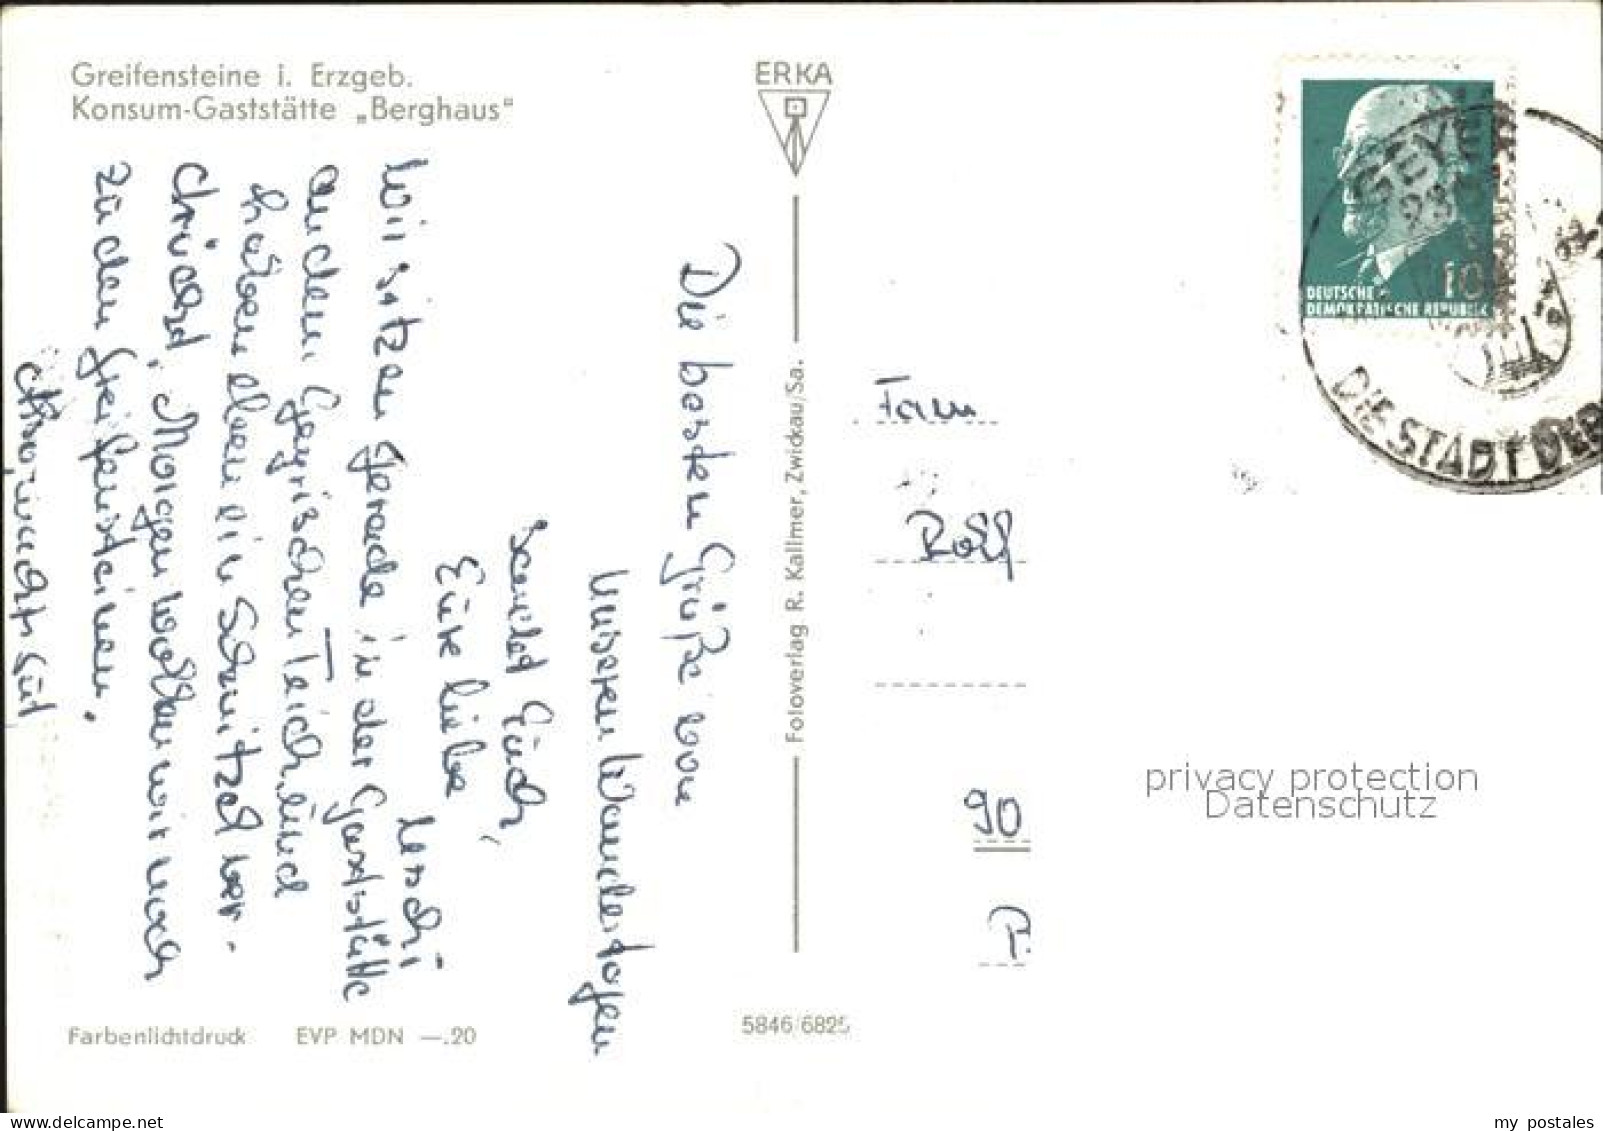 Greifensteine i. Erzgeb.
Konsum-Gaststätte „Berghaus"
ERKA
Die besten Grüße von
unseren Wandertagen
sendet Euch,
Eure liebe
Uschi
Wir sitzen gerade in der Gaststätte
an dem Geyrischen Teich und
haben eben ein Schnitzel ver-
drückt. Morgen wollen wir noch
zu den Greifensteinen.
Farbenlichtdruck EVP MDN —.20
Fotoverlag R. Kallmer, Zwickau/Sa.
5846/6825
10
DEUTSCHE
DEMOKRATISCHE REPUBLIK
GEYER
DIE STADT DER
Fam
Rolf
90
privacy protection
Datenschutz
my postales